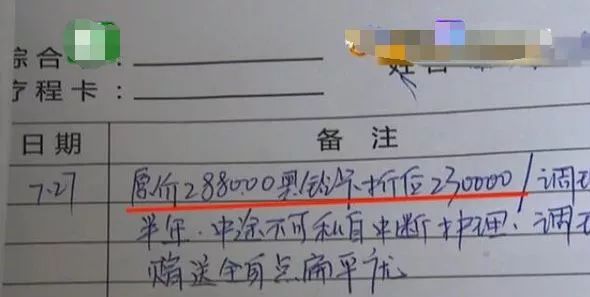 综合 :
疗程卡:
姓名
日期 备注
7.27 原价288000 折后230000/调
半年.中途不可私自中断护理!调
赠送全百点扁平疣